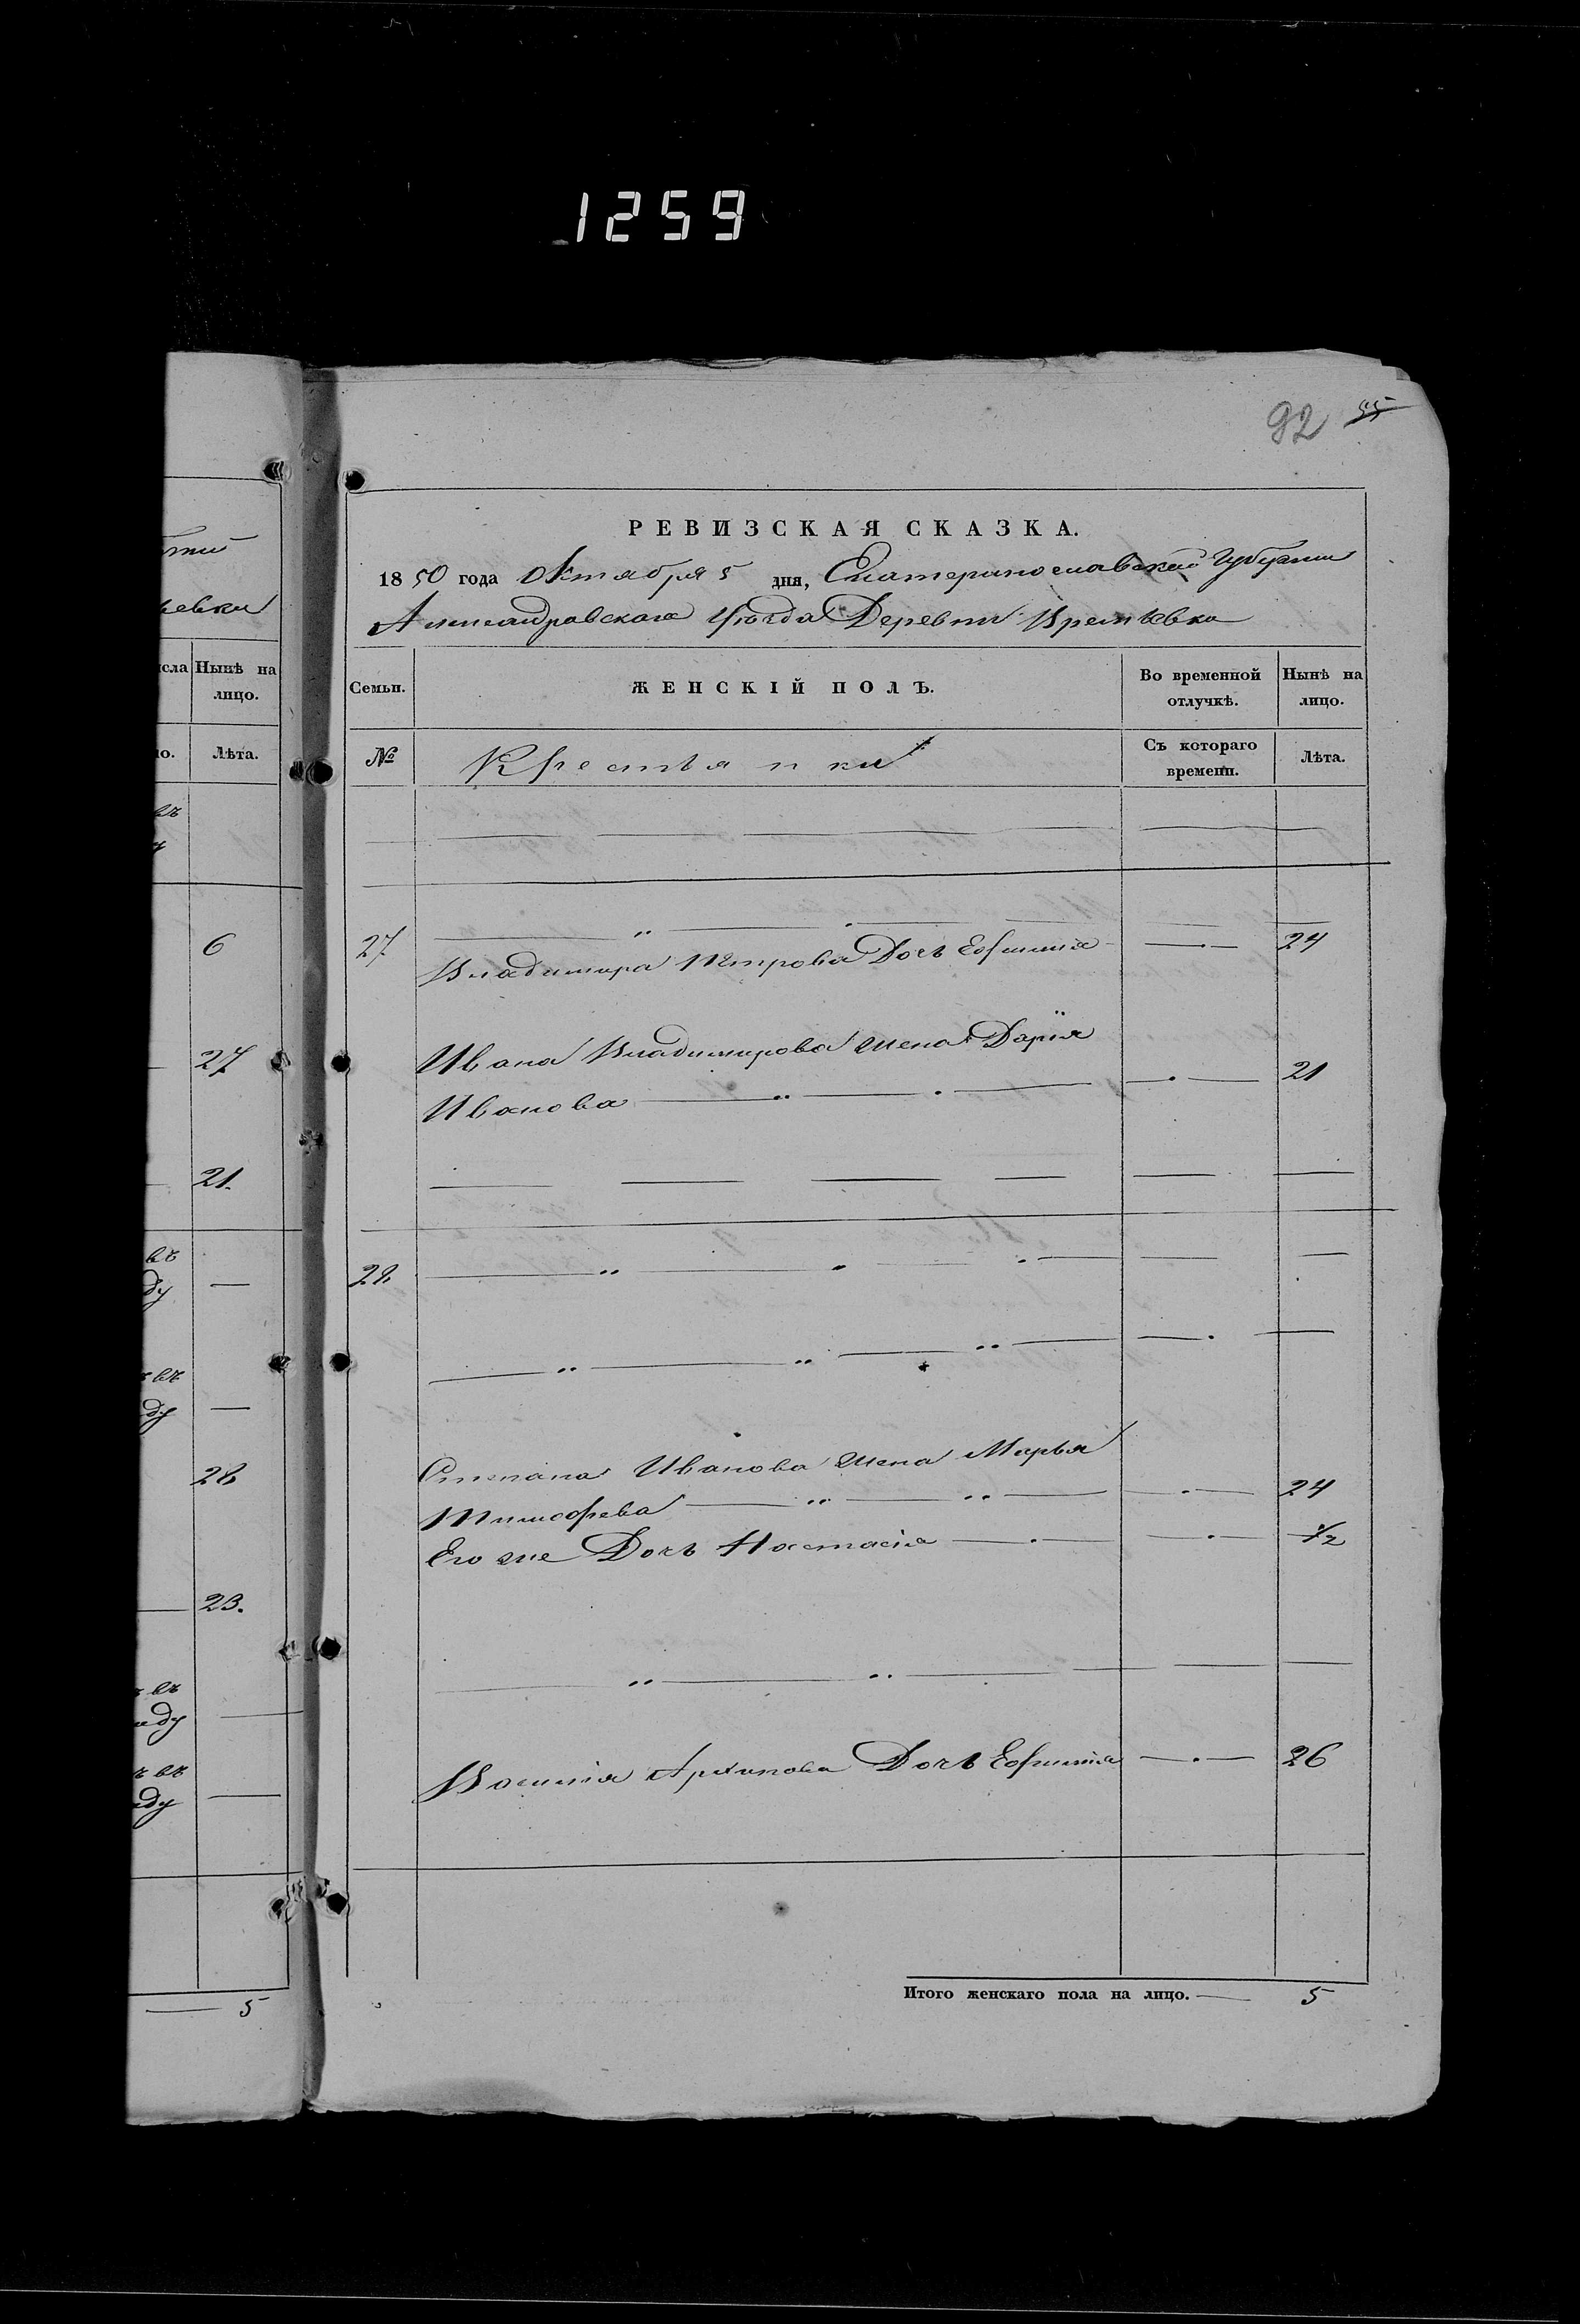 1259
92 55
РЕВИЗСКАЯ СКАЗКА.
1850 года Октября 5 дня, Екатеринославской Губернии
Александровскаго Уѣзда Деревни Времѣевка
Семьи. ЖЕНСКІЙ ПОЛЪ. Во временной отлучкѣ. Нынѣ на лицо.
№ Крестьянки Съ котораго времени. Лѣта.
27 Владимира Петрова Дочь Ефимия 24
Ивана Владимирова жена Дарія
Иванова 21
28
Степана Иванова жена Марья
Тимофева 24
Его же Дочь Настасія 1/2
Архипова Дочь Ефимія 26
Итого женскаго пола на лицо. 5
ревки
исла Нынѣ на лицо.
ло. Лѣта.
въ
6
27
21.
въ
ду
въ
ду
28
23.
въ
аду
въ
аду
5